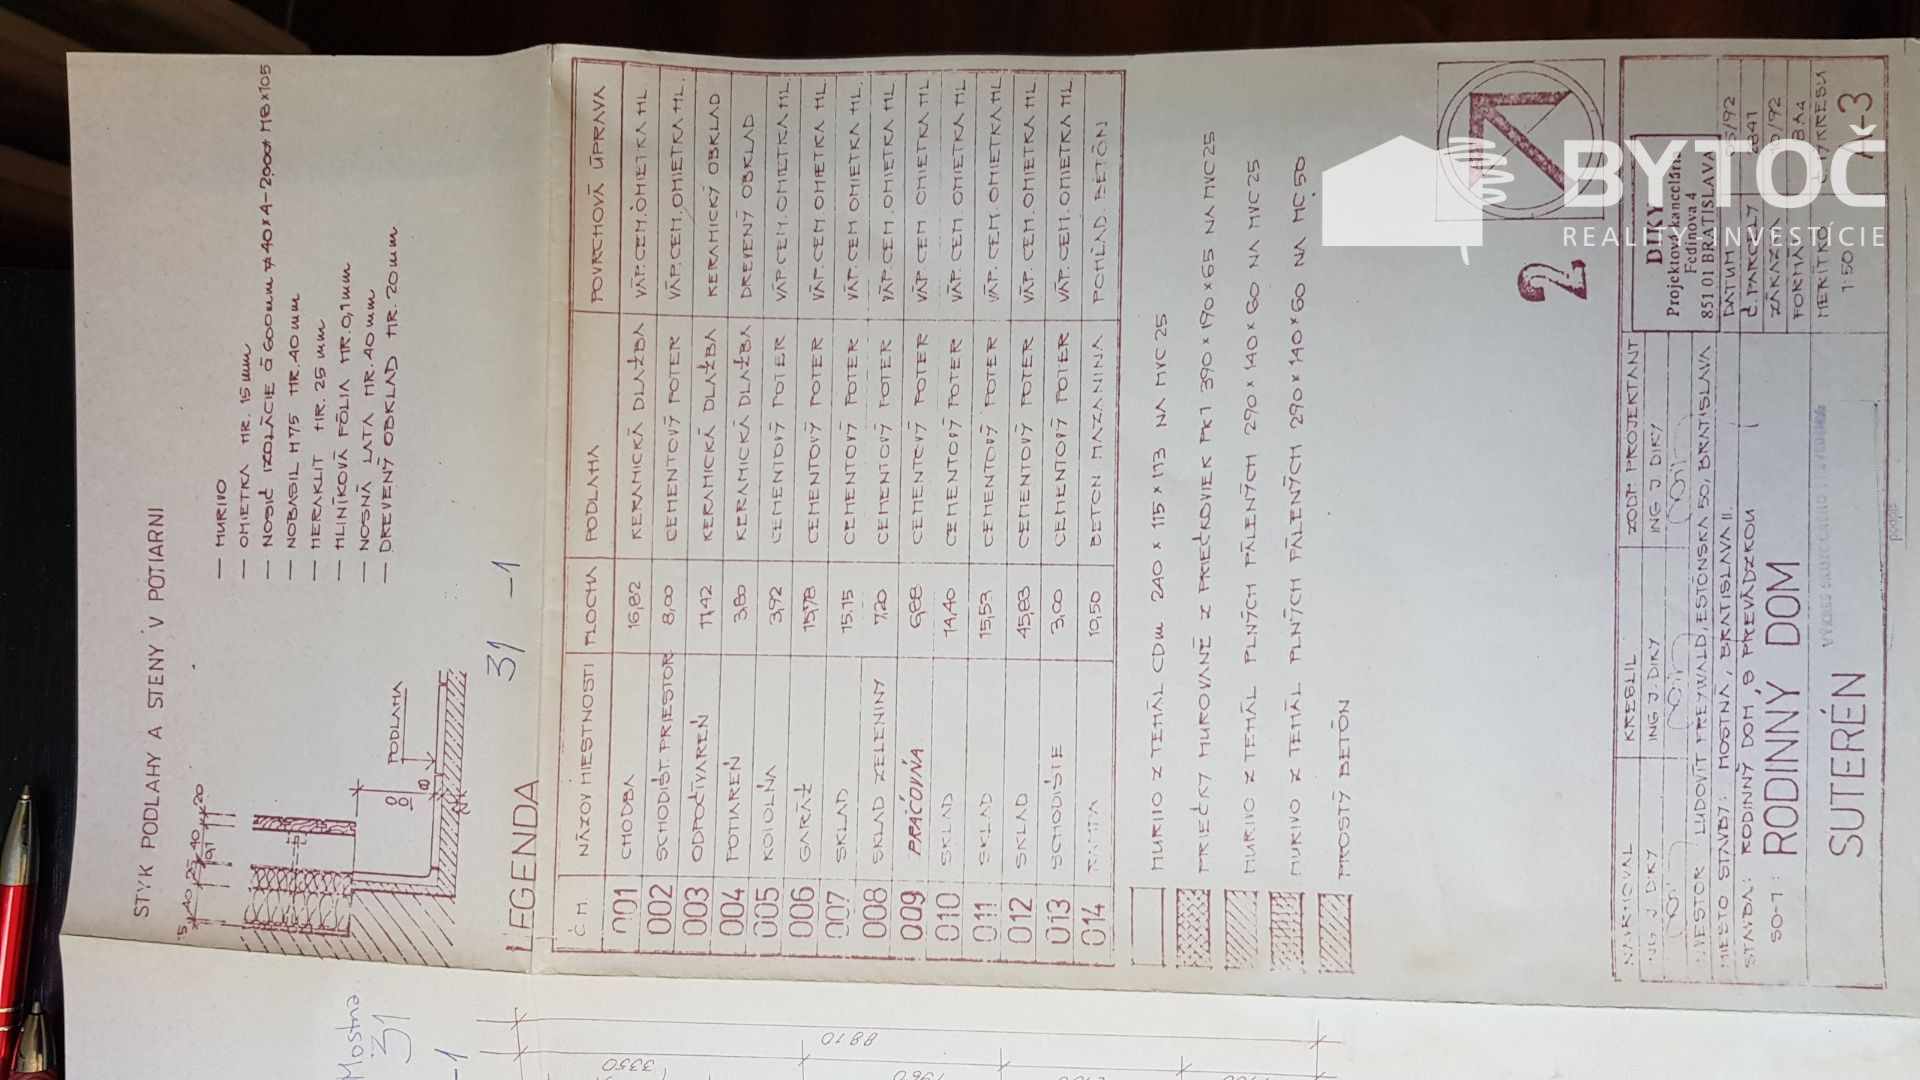 STYK PODLAHY A STENY V POTIARNI
— MURIVO
— OMIETKA HR. 15mm
— NOSIČ IZOLÁCIE Á 600mm
— NOBASIL M75 HR. 40 mm
— HERAKLIT HR. 25 mm
— HLINÍKOVÁ FÓLIA HR. 0,1 mm
— NOSNÁ LATA HR. 40 mm
— DREVENÝ OBKLAD HR. 20mm
PODLAHA
31 -1
LEGENDA
Č.M. NÁZOV MIESTNOSTI PLOCHA PODLAHA POVRCHOVÁ ÚPRAVA
001 CHODBA 16,82 KERAMICKÁ DLAŽBA VÁP.CEM.OMIETKA HL.
002 SCHODIŠT. PRIESTOR 8,00 CEMENTOVÝ POTER VÁP.CEM.OMIETKA HL.
003 ODPOČÍVAREŇ 11,42 KERAMICKÁ DLAŽBA KERAMICKÝ OBKLAD
004 POTIAREŇ 3,80 KERAMICKÁ DLAŽBA DREVENÝ OBKLAD
005 KOTOLŇA 3,92 CEMENTOVÝ POTER VÁP.CEM.OMIETKA HL
006 GARÁŽ 15,78 CEMENTOVÝ POTER VÁP.CEM.OMIETKA HL
007 SKLAD 15,15 CEMENTOVÝ POTER VÁP.CEM.OMIETKA HL.
008 SKLAD ZELENINY 7,20 CEMENTOVÝ POTER VÁP.CEM.OMIETKA HL
009 PRÁČOVŇA 6,88 CEMENTOVÝ POTER VÁP.CEM.OMIETKA HL
010 SKLAD 14,40 CEMENTOVÝ POTER VÁP.CEM.OMIETKA HL
011 SKLAD 15,53 CEMENTOVÝ POTER VÁP.CEM.OMIETKA HL
012 SKLAD 45,83 CEMENTOVÝ POTER VÁP.CEM.OMIETKA HL
013 SCHODIŠTE 3,00 CEMENTOVÝ POTER VÁP.CEM.OMIETKA HL
014 RAMPA 10,50 BETON MAZANINA POHĽAD. BETÓN
MURIVO Z TEHÁL CDm 240 × 115 × 113 NA MVC 25
PRIEČKY MUROVANÉ Z PRIEČKOVIEK PK1 390 × 190 × 65 NA MVC 25
MURIVO Z TEHÁL PLNÝCH PÁLENÝCH 290 × 140 × 60 NA MVC 25
MURIVO Z TEHÁL PLNÝCH PÁLENÝCH 290 × 140 × 60 NA MC 50
PROSTÝ BETÓN
2
BYTOČ
REALITY INVESTÍCIE
NAVRHOVAL KRESLIL ZODP. PROJEKTANT
ING J. DIKY ING J. DIKY ING J DIKY
DIKY
Projektová kancelária
Fedinova 4
851 01 BRATISLAVA
INVESTOR: ĽUDOVÍT FREYWALD, ESTÓNSKA 50, BRATISLAVA
MIESTO STAVBY: MOSTNÁ, BRATISLAVA II.
STAVBA: RODINNÝ DOM S PREVÁDZKOU
SO-1: RODINNÝ DOM
SUTERÉN
DATUM
Č. PARCELY
ZÁKAZKA
FORMÁT
MERÍTKO
1:50
Č. VÝKRESU
podpis
Mostna
31
-1
8810
3350
1960